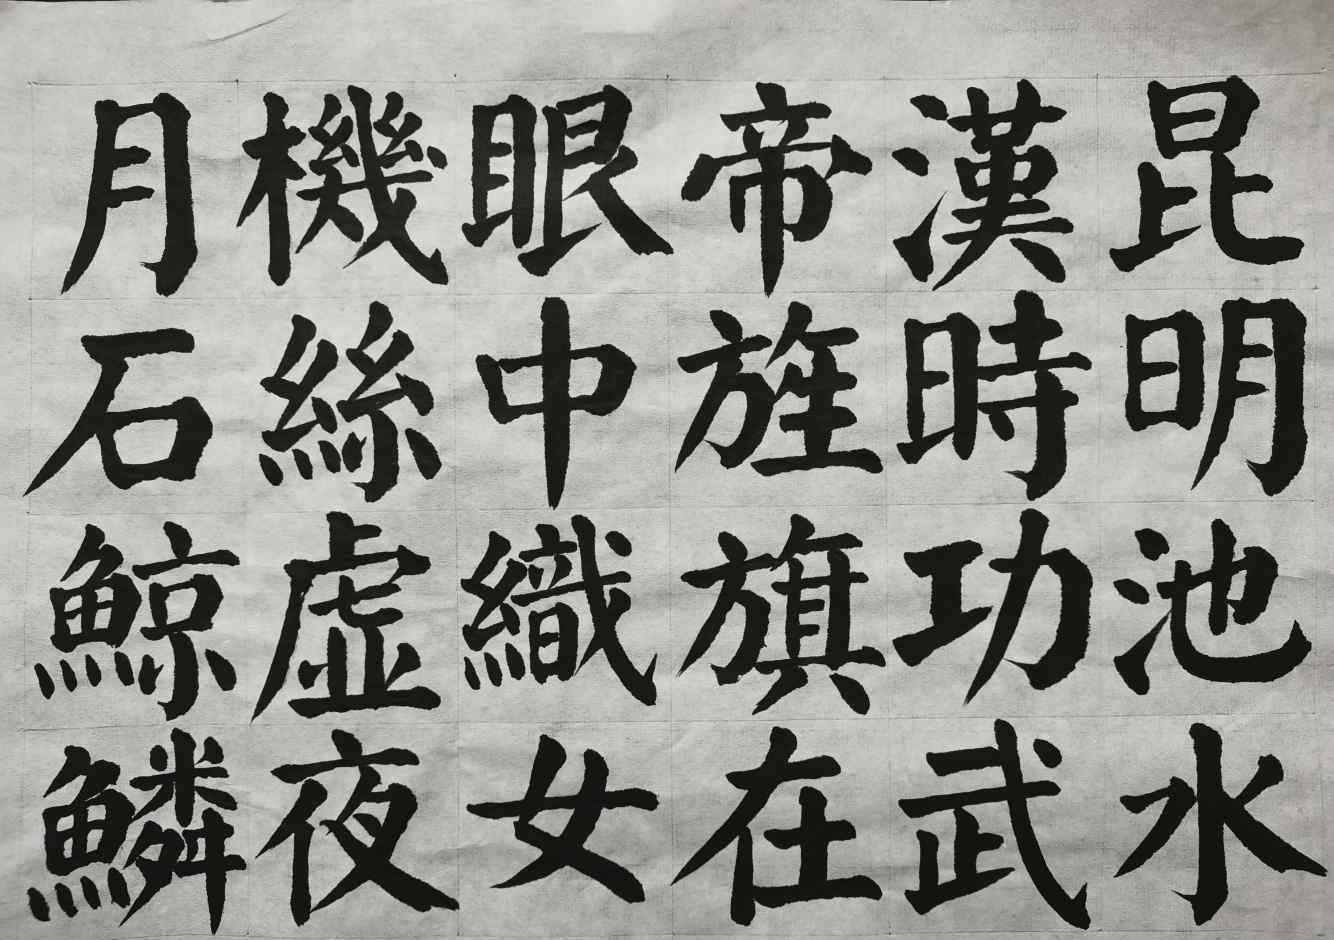 昆明池水
漢時功武
帝旌旗在
眼中織女
機絲虚夜
月石鯨鱗